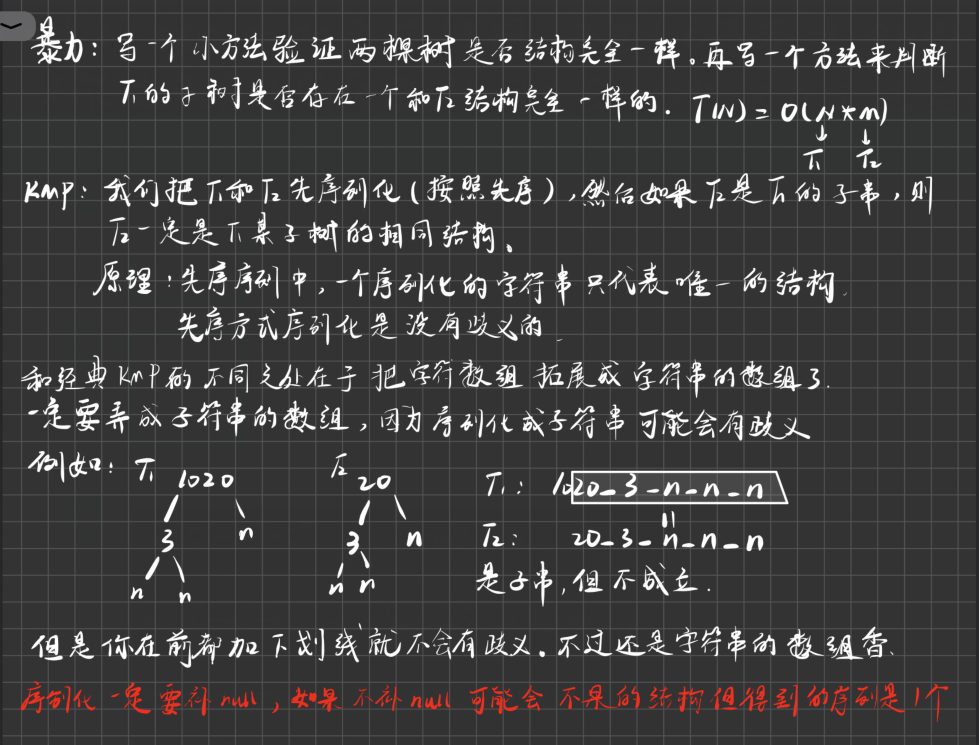 暴力：写一个小方法验证两棵树是否结构完全一样。再写一个方法来判断
T₁的子树是否存在一个和T₂结构完全一样的. T(N)=O(N*m)
↓ ↓
T₁ T₂
KMP：我们把T₁和T₂先序列化(按照先序)，然后如果T₂是T₁的子串，则
T₂一定是T₁某子树的相同结构。
原理：先序序列中，一个序列化的字符串只代表唯一的结构.
先序方式序列化是没有歧义的.
和经典KMP的不同之处在于把字符数组拓展成字符串的数组了.
一定要弄成字符串的数组，因为序列化成字符串可能会有歧义
例如：T₁ 1020 T₂ 20 T₁: 1020_3_n_n_n
3 n 3 n T₂: 20_3_n_n_n
n n n n 是子串，但不成立.
但是你在前部加下划线就不会有歧义。不过还是字符串的数组香.
序列化一定要补null，如果不补null可能会不同的结构但得到的序列是1个